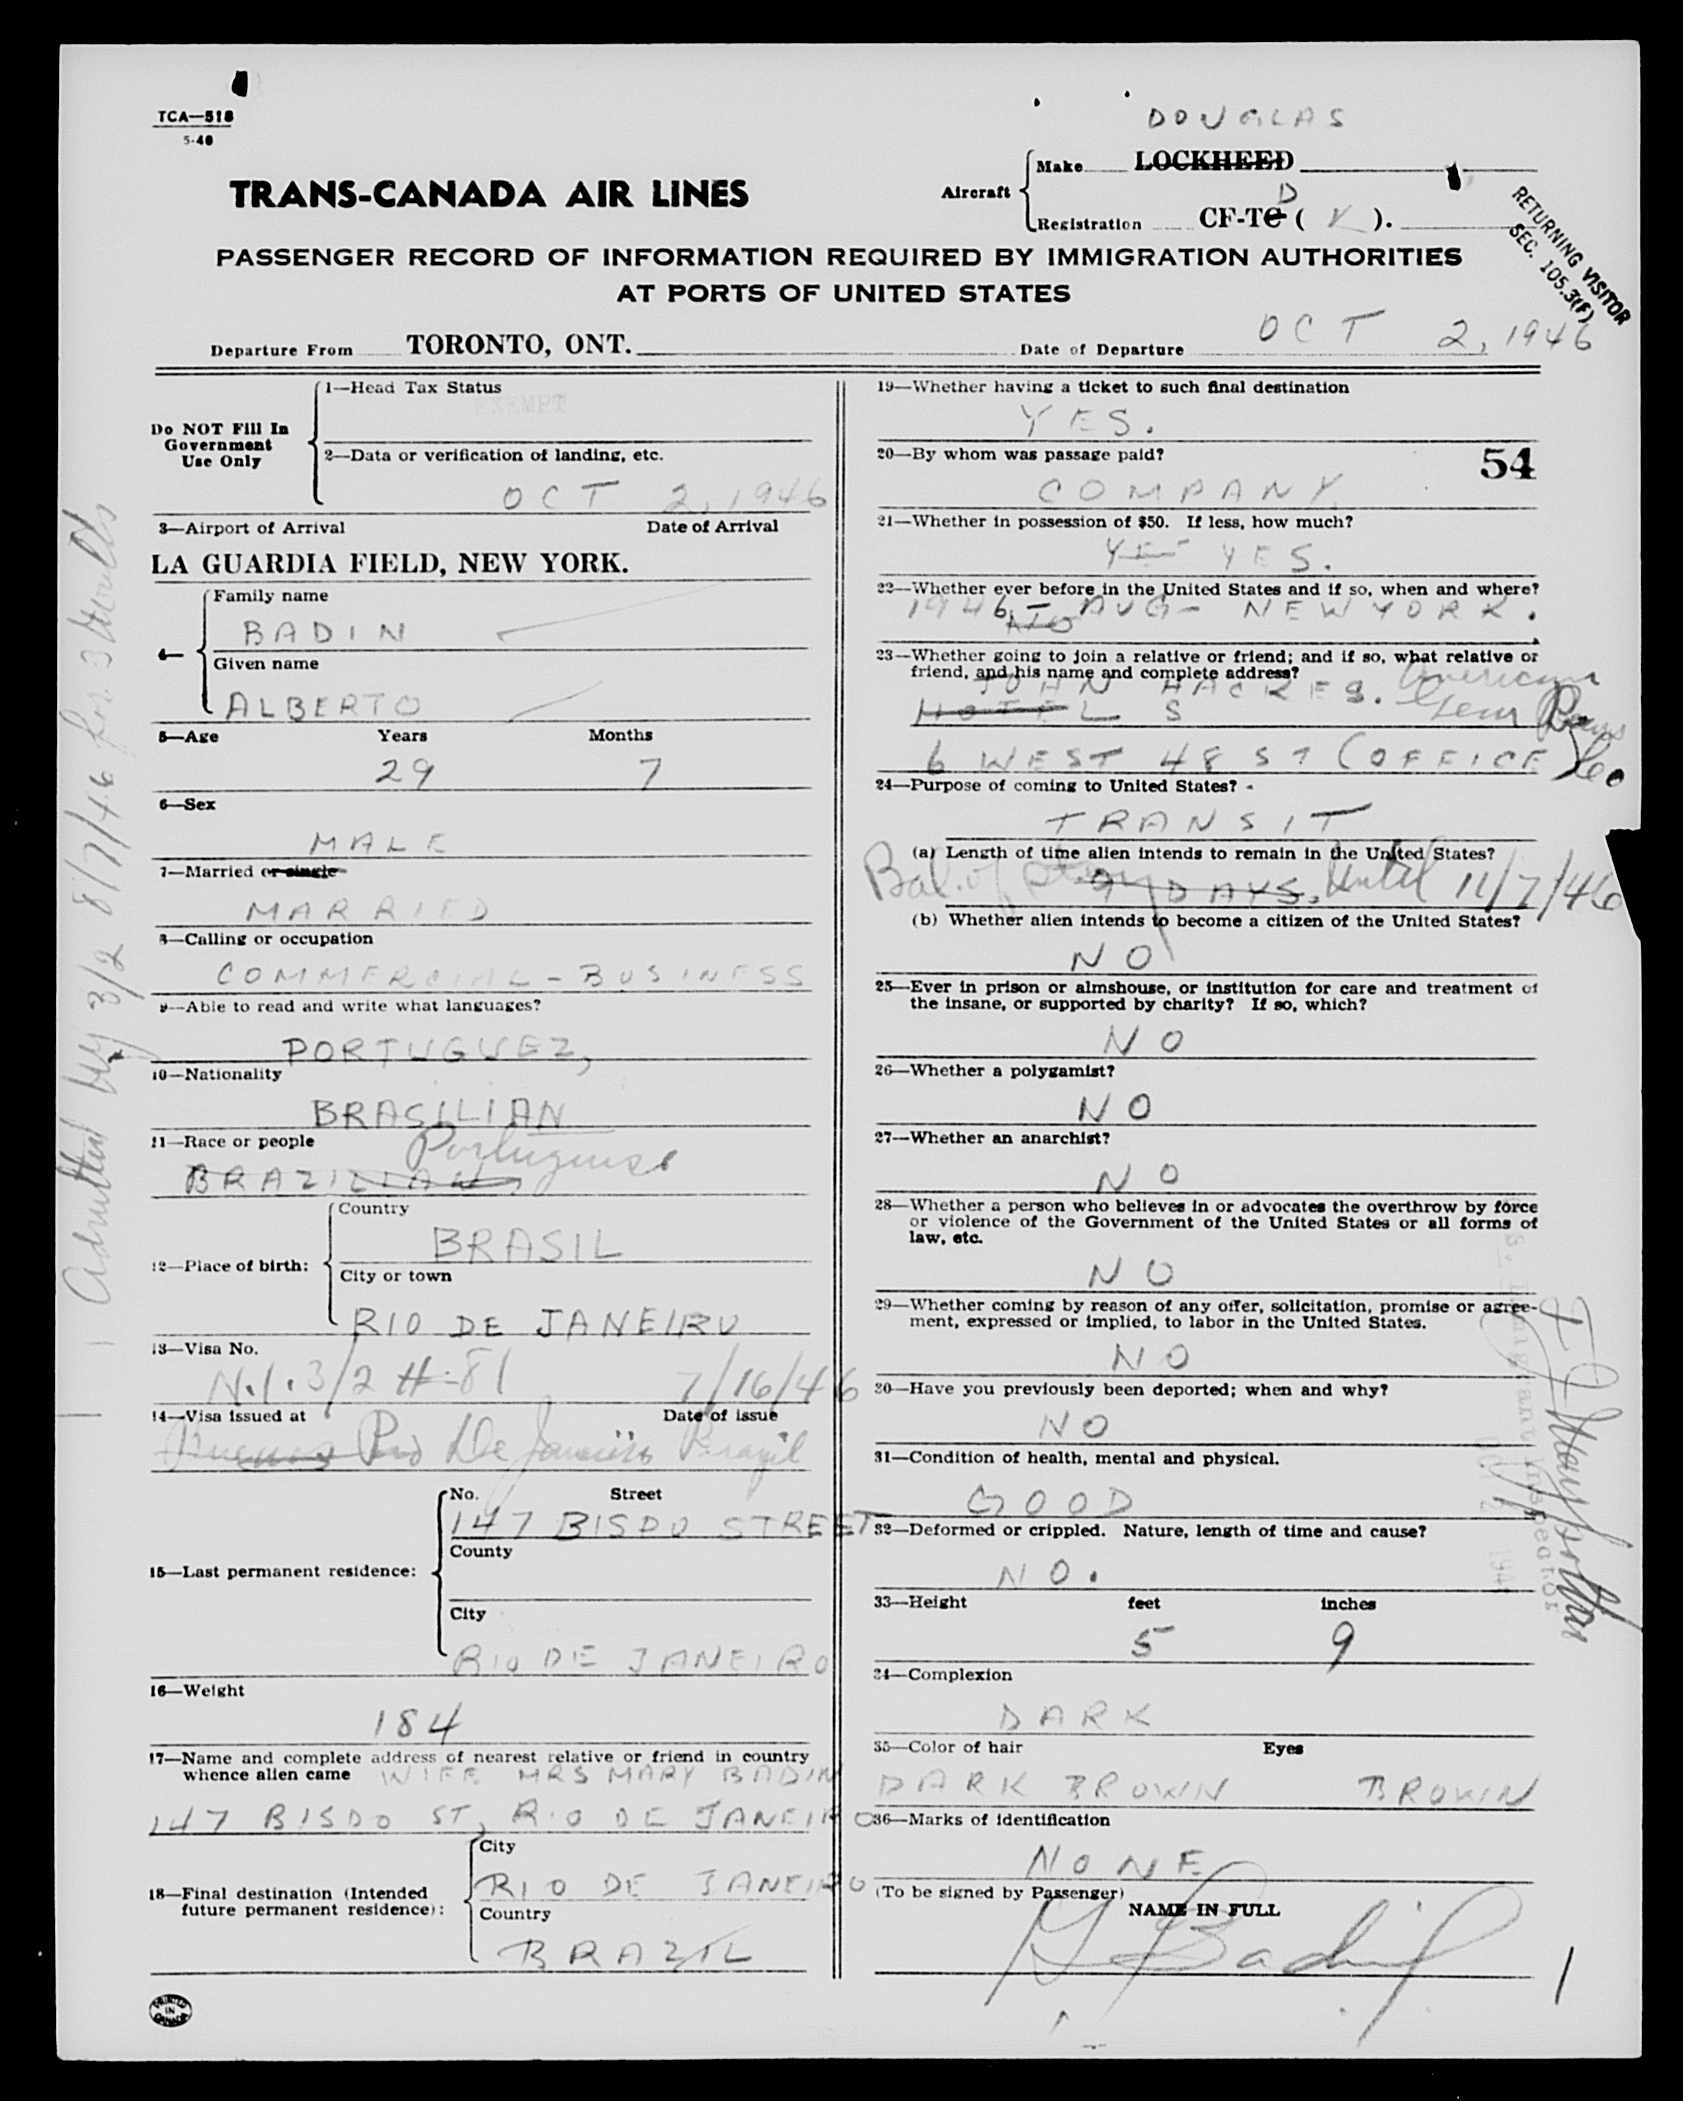 TCA—518
5-40
DOUGLAS
Aircraft
Make LOCKHEED
D
Registration CF-TC ( K ).
TRANS-CANADA AIR LINES
RETURNING VISITOR
SEC. 105.3(f)
PASSENGER RECORD OF INFORMATION REQUIRED BY IMMIGRATION AUTHORITIES
AT PORTS OF UNITED STATES
Departure From TORONTO, ONT. Date of Departure OCT 2, 1946
Do NOT Fill In
Government
Use Only
1—Head Tax Status
EXEMPT
2—Data or verification of landing, etc.
OCT 2, 1946
3—Airport of Arrival Date of Arrival
LA GUARDIA FIELD, NEW YORK.
4—
Family name
BADIN
Given name
ALBERTO
5—Age Years Months
29 7
6—Sex
MALE
7—Married or single
MARRIED
8—Calling or occupation
COMMERCIAL - BUSINESS
9—Able to read and write what languages?
PORTUGUEZ,
10—Nationality
BRASILIAN
11—Race or people
Portuguese
BRAZILIAN
12—Place of birth:
Country
BRASIL
City or town
RIO DE JANEIRO
13—Visa No.
N.I. 3/2 #-81 7/16/46
14—Visa issued at Date of issue
Buenos Rio De Janeiro Brazil
15—Last permanent residence:
No. Street
147 BISPO STREET
County
City
RIO DE JANEIRO
16—Weight
184
17—Name and complete address of nearest relative or friend in country
whence alien came WIFE MRS MARY BADIN
147 BISDO ST, RIO DE JANEIRO
18—Final destination (Intended
future permanent residence):
City
RIO DE JANEIRO
Country
BRAZIL
PRINTED
IN
CANADA
Admitted NY 3/2 8/7/46 for 3 Months
19—Whether having a ticket to such final destination
YES.
20—By whom was passage paid?
54
COMPANY
21—Whether in possession of $50. If less, how much?
YE YES.
22—Whether ever before in the United States and if so, when and where?
1946 - AUG - NEW YORK.
NO
23—Whether going to join a relative or friend; and if so, what relative or
friend, and his name and complete address?
JOHN HACKES. American
HOTEL S Gem
6 WEST 48 ST (OFFICE)
24—Purpose of coming to United States?
TRANSIT
(a) Length of time alien intends to remain in the United States?
Bal. of stay 9 DAYS, Until 11/7/46
(b) Whether alien intends to become a citizen of the United States?
NO
25—Ever in prison or almshouse, or institution for care and treatment of
the insane, or supported by charity? If so, which?
NO
26—Whether a polygamist?
NO
27—Whether an anarchist?
NO
28—Whether a person who believes in or advocates the overthrow by force
or violence of the Government of the United States or all forms of
law, etc.
NO
29—Whether coming by reason of any offer, solicitation, promise or agree-
ment, expressed or implied, to labor in the United States.
NO
30—Have you previously been deported; when and why?
NO
31—Condition of health, mental and physical.
GOOD
32—Deformed or crippled. Nature, length of time and cause?
NO.
33—Height feet inches
5 9
34—Complexion
DARK
35—Color of hair Eyes
DARK BROWN BROWN
36—Marks of identification
NONE
(To be signed by Passenger)
NAME IN FULL
Badin
1
U.S. Immigrant Inspector
OCT 2 194